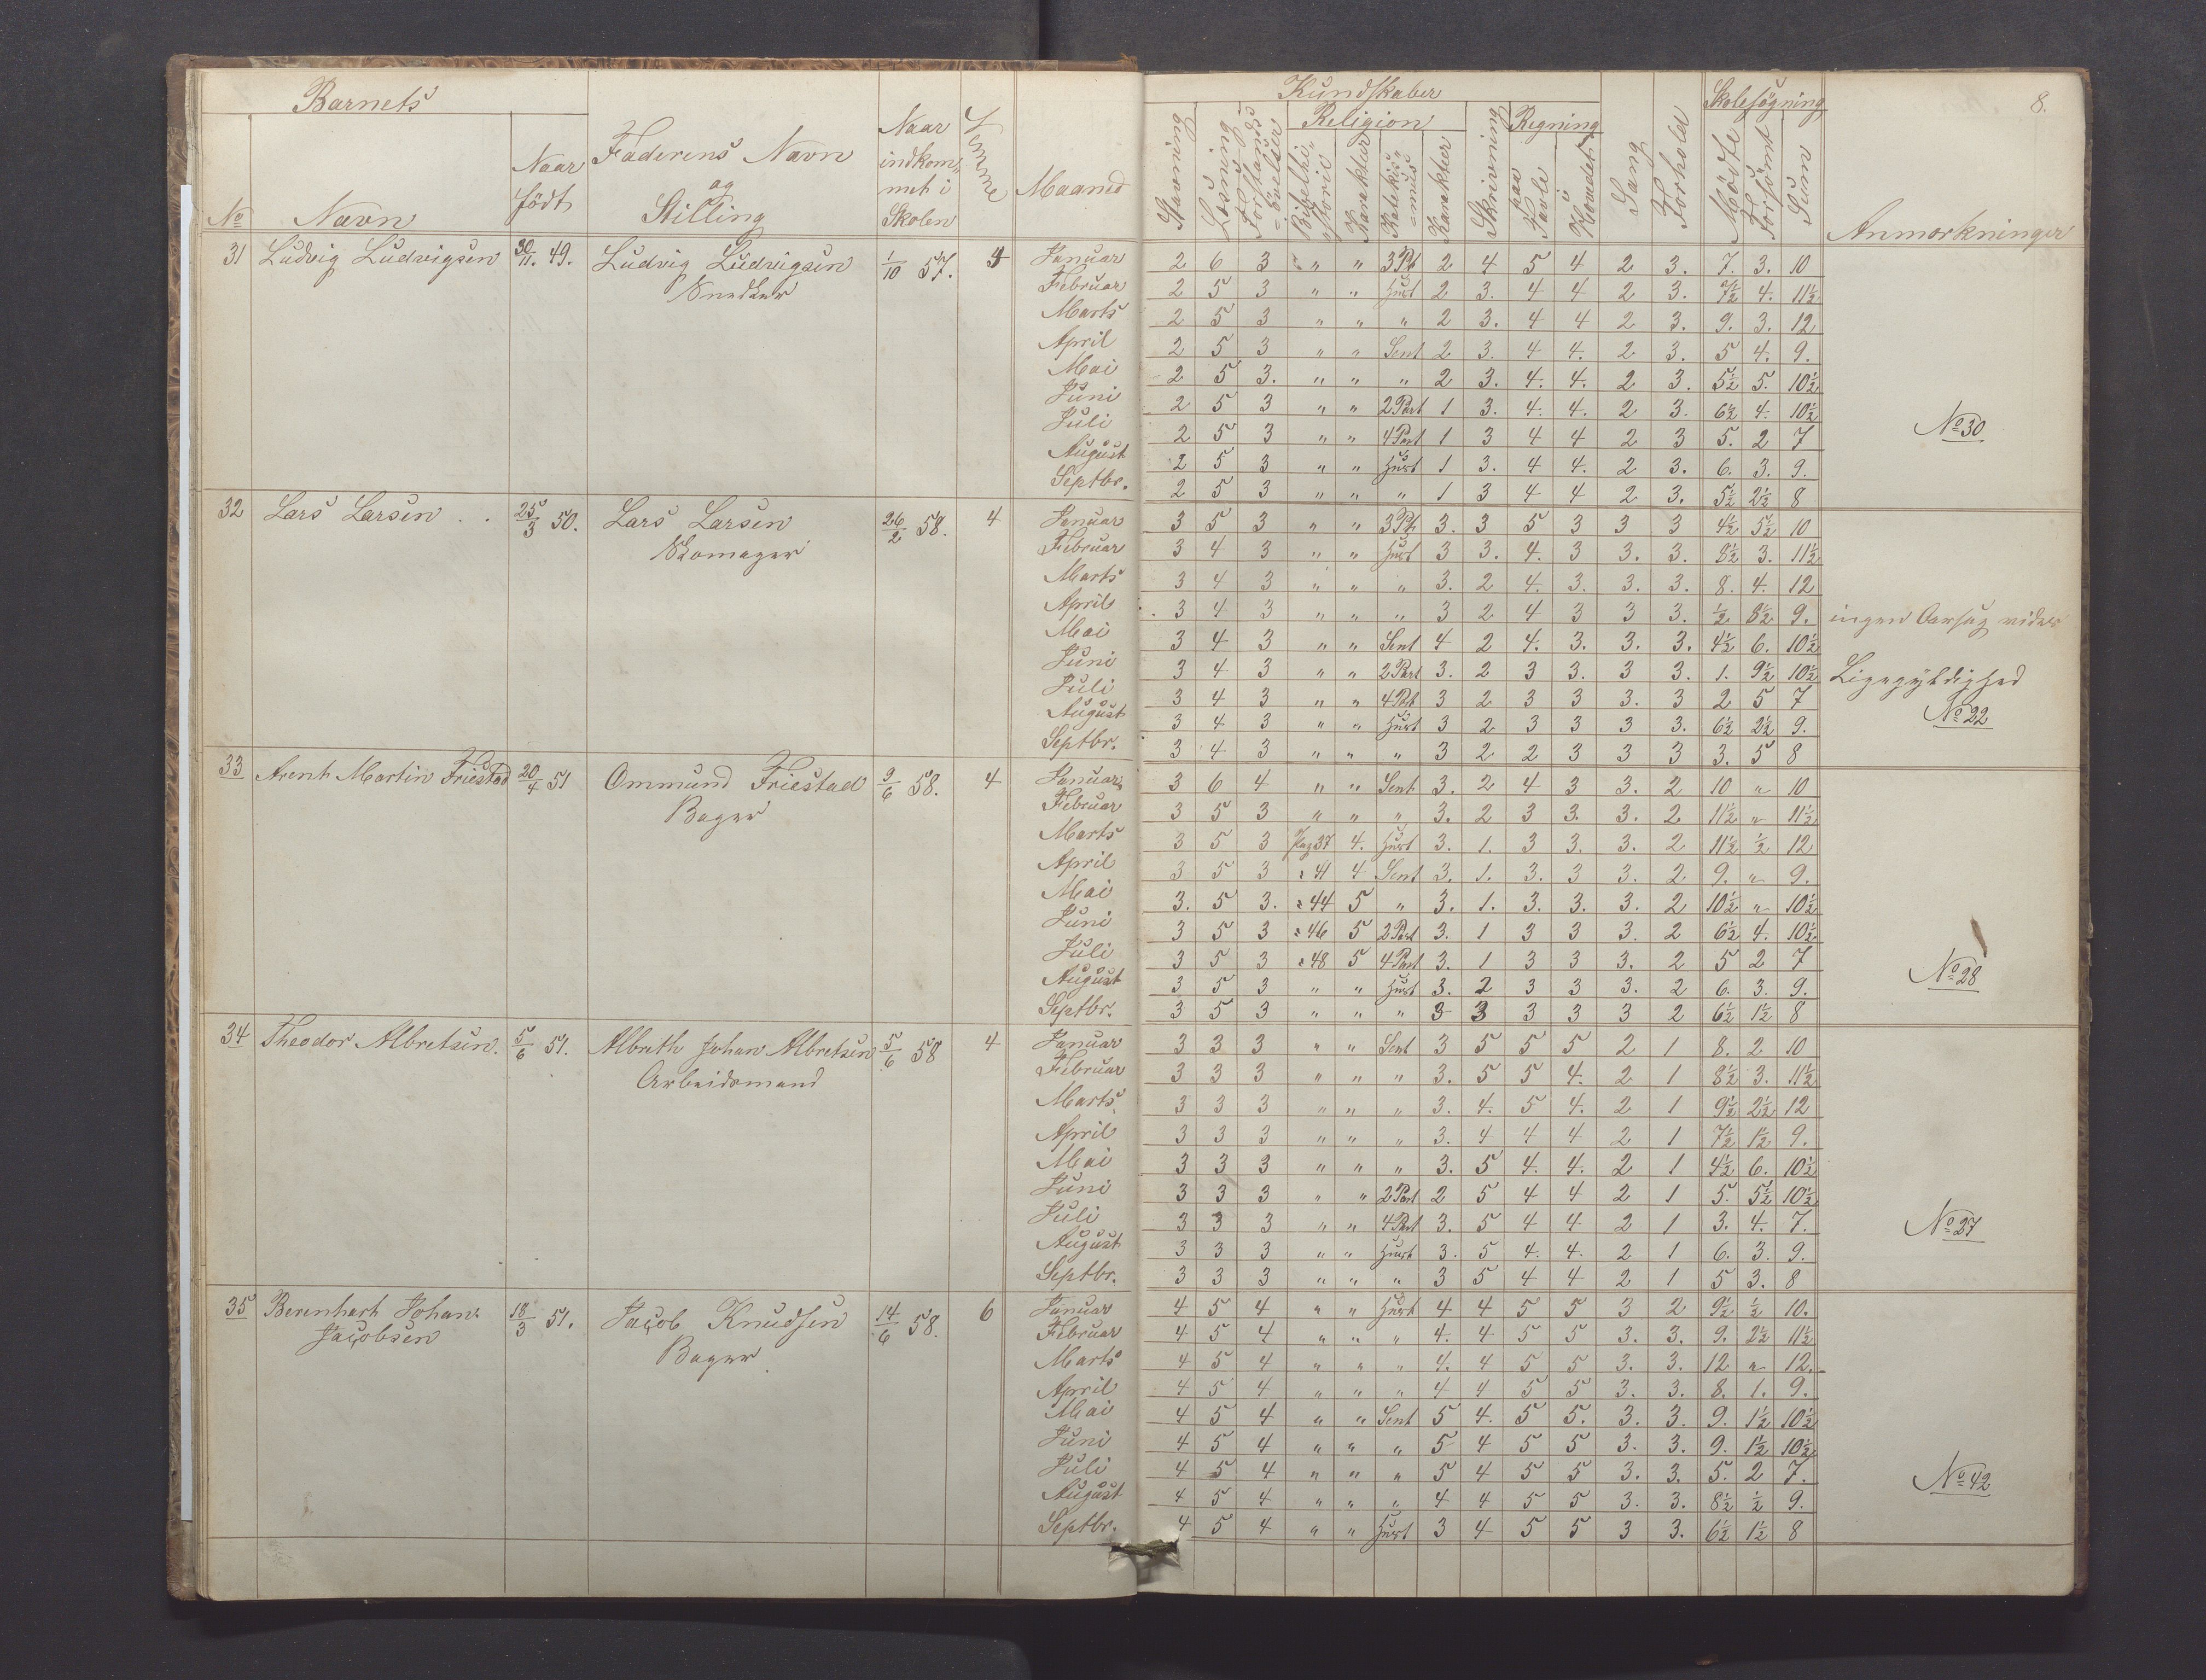 Barnets
Naar
Faderens Navn
Naar
indkom-
Maaned
Kundskaber
Skolesøgning
8.
født
og
met i
Religion
Regning
No
Navn
Stilling
Skolen
Stavning
Læsning
Karakter
Karakter
Skrivning
paa
Tavle
i
Hovedet
Sang
Forhold
Mødte
Forsømt
Sum
Anmærkninger
31 Ludvig Ludvigsen 30/11. 49. Ludvig Ludvigsen 1/10 57. 4 Januar 2 6 3 " " 3 Pt 2 4 5 4 2 3. 7. 3. 10
Snedker Februar 2 5 3 " " Hust 2 3. 4 4 2 3. 7½ 4. 11½
Marts 2 5 3 " " " 2 3. 4 4 2 3. 9. 3. 12
April 2 5 3 " " Sent 2 3. 4 4. 2 3. 5 4. 9.
Mai 2 5 3. " " " 2 3. 4. 4. 2 3. 5½ 5. 10½
Juni 2 5 3 " " 2 Part 1 3. 4. 4. 2 3. 6½ 4. 10½
Juli 2 5 3 " " 4 Part 1 3 4 4 2 3 5. 2 7 No 30
August 2 5 3 " " Hust 1 3. 4 4. 2 3. 6. 3. 9.
Septbr. 2 5 3 " " " 1 3 4 4 2 3. 5½ 2½ 8
32 Lars Larsen 25/3 50. Lars Larsen 26/2 58. 4 Januar 3 5 3 " " 3 Pt 3. 3 5 3 3 3 4½ 5½ 10
Skomager Februar 3 4 3 " " Hust 3 3. 4. 3 3. 3. 8½ 3. 11½
Marts 3 4 3 " " " 3. 2 4. 3. 3. 3. 8. 4. 12
April 3 4 3 " " " 3 2 4 3 3 3. ½ 8½ 9. ingen
Mai 3 4 3 " " Sent 4 2 4. 3. 3. 3. 4½ 6. 10½
Juni 3 4 3 " " 2 Part 3. 2 3 3. 3 3. 1. 9½ 10½ Ligegyldighed
Juli 3 4 3 " " 4 Part 3 2 3 3 3. 3 2 5 7
August 3 4 3 " " Hust 3 2 3 3 3 3. 6½ 2½ 9. No 22
Septbr. 3 4 3 " " " 3 2 2 3 3 3 3. 5 8
33 Arent Martin Friestad 20/4 51 Ommund Friestad 9/6 58. 4 Januar 3 6 4 " " Sent 3. 2 4 3 3. 2 10 " 10
Bager Februar 3 5 3 " " " 3. 2 3 3. 3. 2 11½ " 11½
Marts 3 5 3 Pag 37 4. Hust 3. 1. 3 3. 3. 2 11½ ½ 12
April 3 5 3 " 41 4 Sent 3. 1. 3. 3 3. 2 9. " 9.
Mai 3. 5 3. " 44 5 " 3. 1. 3. 3. 3. 2 10½ " 10½
Juni 3 5 3 " 46 5 2 Part 3. 1 3 3 3. 2 6½ 4. 10½
Juli 3 5 3 " 48 5 4 Part 3. 1 3 3 3. 2 5 2 7 No 28
August 3 5 3 " " Hust 3. 2 3 3 3. 2 6. 3. 9.
Septbr. 3 5 3 " " " 3 3 3 3 3 2 6½ 1½ 8
34 Theodor Albretsen. 5/6 51. Albrith Johan Albretsen 5/6 58 4 Januar 3 3 3 " " Sent 3 5 5 5 2 1 8. 2 10
Arbeidsmand Februar 3 3 3 " " " 3. 5 5 4. 2 1 8½ 3. 11½
Marts 3 3 3 " " " 3. 4. 5 4. 2 1 9½ 2½ 12
April 3 3 3 " " " 3. 4 4 4 2 1 7½ 1½ 9.
Mai 3 3 3 " " " 3. 5 4. 4. 2 1 4½ 6. 10½
Juni 3 3 3 " " 2 Part 2 5 4 4 2 1 5. 5½ 10½
Juli 3 3 3 " " 4 Part 3. 5 4 4 2 1 3. 4. 7. No 27
August 3 3 3 " " Hust 3. 5 4. 4. 2 1 6. 3. 9.
Septbr. 3 3 3 " " " 3 5 4 4 2 1 5 3. 8
35 Berenhart Johan 18/3 51. Jacob Knudsen 14/6 58. 6 Januar 4 5 4 " " Hust 4 4 5 5 3 2 9½ ½ 10.
Jacobsen Bager Februar 4 5 4 " " " 4. 4 5 5 3. 3. 9. 2½ 11½
Marts 4 5 4 " " " 4. 4 5 5 3. 3. 12 " 12.
April 4 5 4 " " " 4 4 5 5 3. 3. 8. 1. 9.
Mai 4 5 4 " " Sent 5 4. 5 5. 3. 3. 9. 1½ 10½
Juni 4 5 4 " " " 5 4 5 5 3. 3. 9. 1½ 10½
Juli 4 5 4 " " " 5 4 5 5 3. 3. 5. 2 7. No 42
August 4 5 4 " " " 4 4 5 5 3. 3. 8½ ½ 9.
Septbr. 4 5 4 " " Hust 3 4 5 5 3 3. 6½ 1½ 8